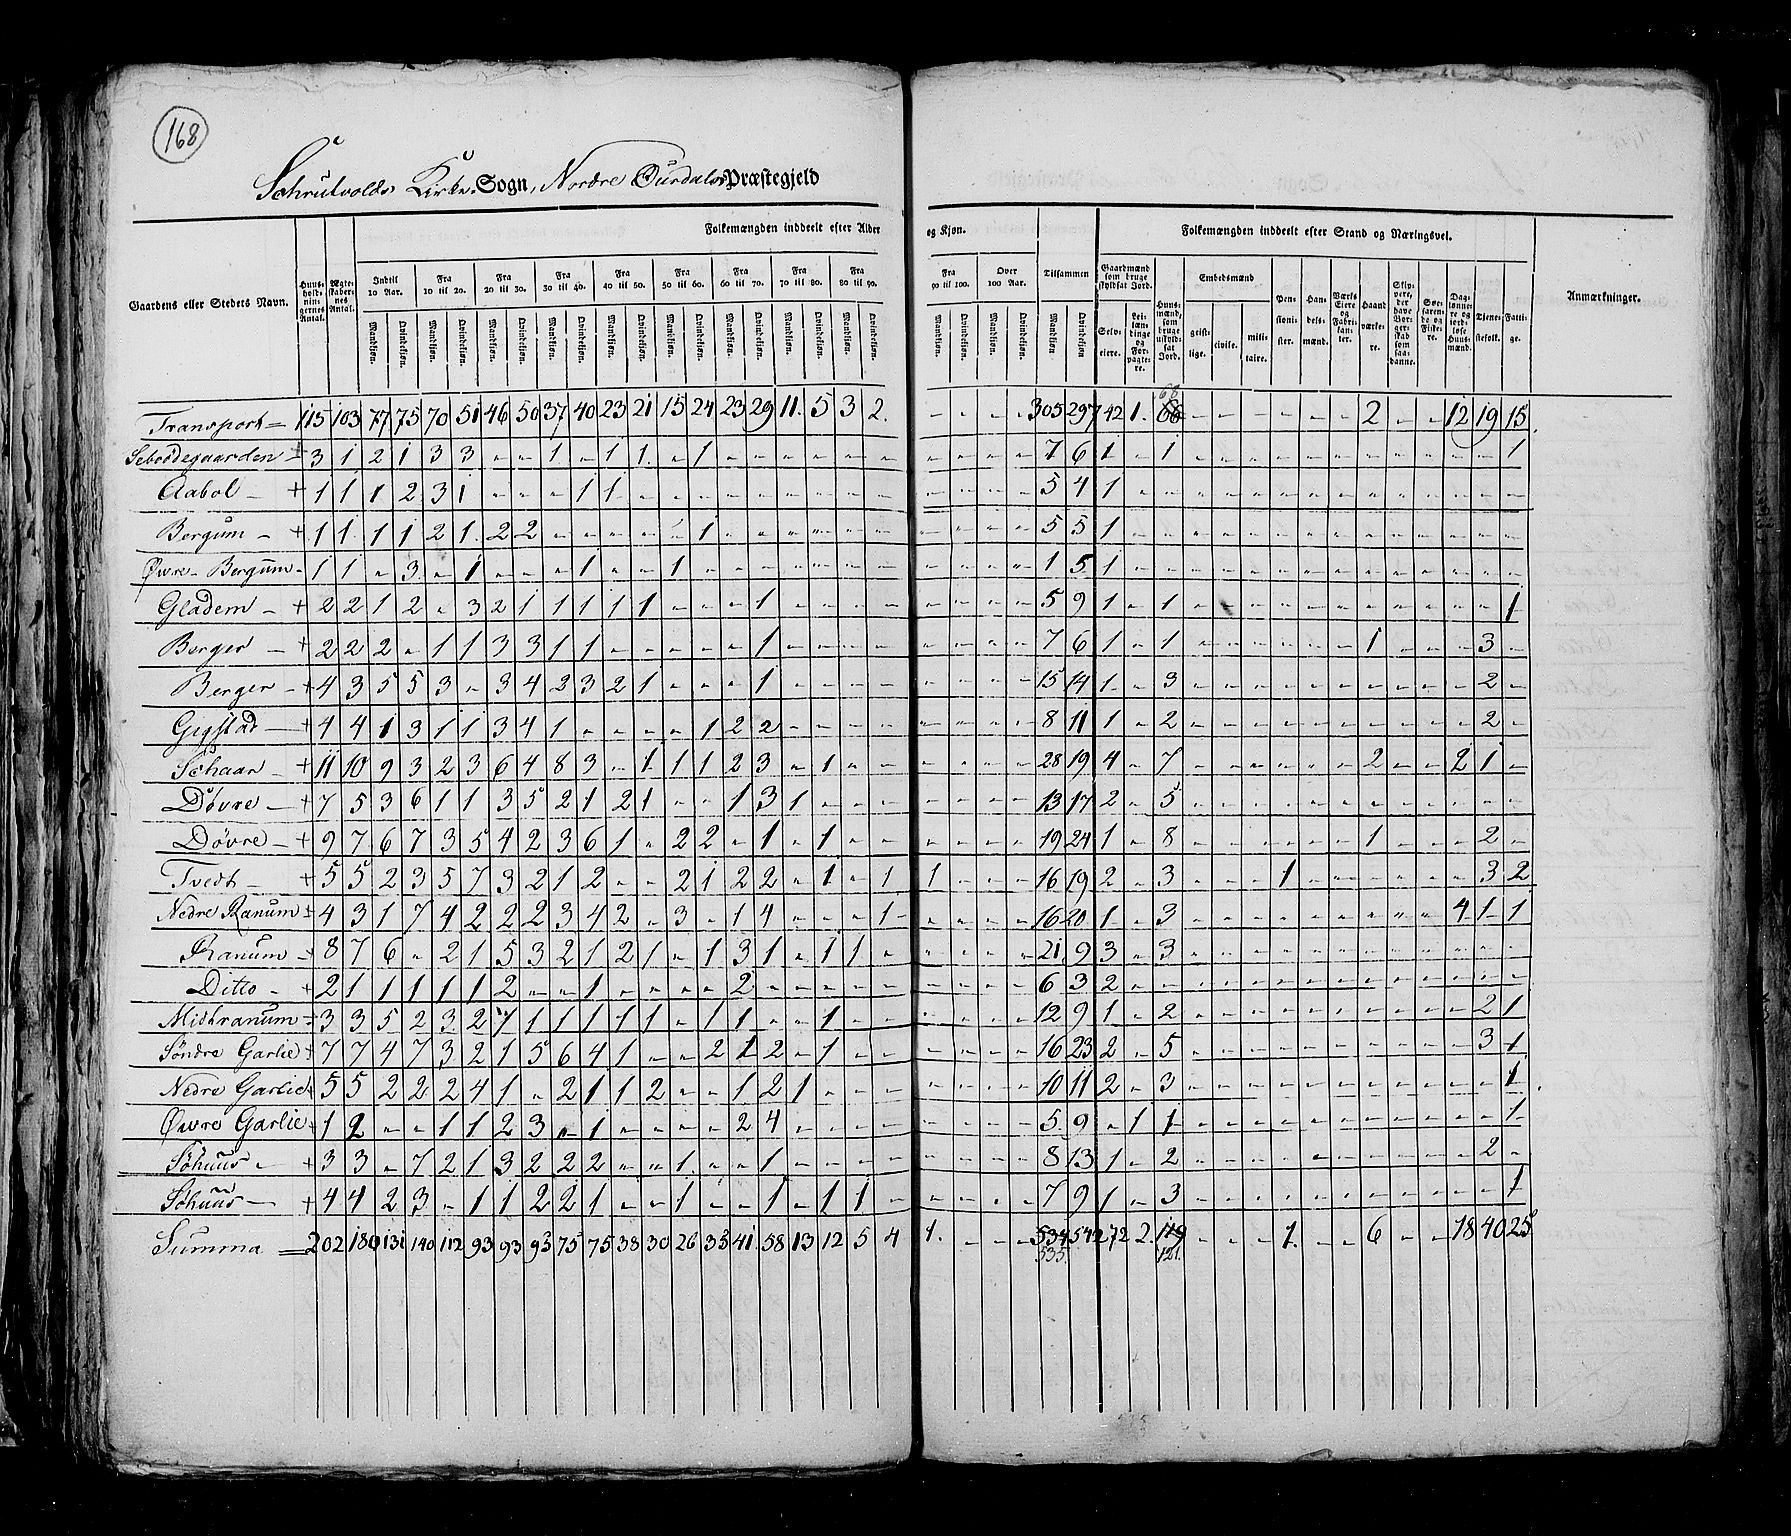 168
Schrutvolds Kirke Sogn, Nordre Ourdals Præstegjeld
Folkemængden inddeelt efter Alder og Kjøn. Folkemængden inddeelt efter Stand og Næringsvei.
Gaardens eller Stedets Navn. Huusholdningernes Antal. Ægteskabernes Antal. Indtil 10 Aar. Fra 10 til 20. Fra 20 til 30. Fra 30 til 40. Fra 40 til 50. Fra 50 til 60. Fra 60 til 70. Fra 70 til 80. Fra 80 til 90. Fra 90 til 100. Over 100 Aar. Tilsammen Gaardmænd som bruge skyldsat Jord. Huusmænd, som bruge uskyldsat Jord. Embedsmænd Pensionister. Handelsmænd. Værks Eiere og Fabrikanter. Haandværkere. Skippere, der have Borgerskab som saadanne. Søefarende og Fiskere. Daglønnere og jordløse Huusmænd. Tjenestefolk. Fattige. Anmærkninger.
Mandkjøn. Qvindekjøn. Selveiere. Leilændinge og Forpagtere. geistlige. civile. militaire.
Transport 115 103 77 75 70 51 46 50 37 40 23 21 15 24 23 29 11. 5 3 2. - - - - 305 297 42 1. 66 68 - - - - - - 2 - - 12 19 15
Seboodegaarden + 3 1 2 1 3 3 - - 1 - 1 1. - 1 - - - - - - - - - - 7 6 1 - 1 - - - - - - - - - - - 1
Aabol - + 1 1 1 2 3 1 - - - 1 1 - - - - - - - - - - - - - 5 4 1 - - - - - - - - - - - - - -
Bergum - + 1 1. 1 1 2 1. 2 2 - - - - - 1 - - - - - - - - - - 5 5 1 - - - - - - - - - - - - - -
Øvre Bergum - 1 1 - 3 - 1 - - - 1 - - 1 - - - - - - - - - - - 1 5 1 - - - - - - - - - - - - - -
Gladem - + 2 2 1 2 - 3 2 1 1 1 1 1 - - - 1 - - - - - - - - 5 9 1 - 1 - - - - - - - - - - - 1
Berger - + 2 2 2 - 1 1 3 3 1 1 - - - - - 1 - - - - - - - - 7 6 1 - 1 - - - - - - 1 - - - 3 -
Berger - + 4 3 5 5 3 - 3 4 2 3 2 1 - - - 1 - - - - - - - - 15 14 1 - 3 - - - - - - - - - - 2 -
Gigstad - + 4 4 1 3 1 1 3 4 1 - - - - 1 2 2 - - - - - - - - 8 11 1 - 2 - - - - - - - - - - 2 -
Schaar - + 11 10 9 3 2 3 6 4 8 3 - 1 1 1 2 3 - 1 - - - - - - 28 19 4 - 7 - - - - - - 2 - - 2 1 -
Døvre - + 7 5 3 6 1 1 3 5 2 1 2 1 - - 1 3 1 - - - - - - - 13 17 2 - 5 - - - - - - - - - - - -
Døvre - + 9 7 6 7 3 5 4 2 3 6 1 - 2 2 - 1 - 1 - - - - - - 19 24 1 - 8 - - - - - - 1 - - - 2 -
Tvedt - + 5 5 2 3 5 7 3 2 1 2 - - 2 1 2 2 - 1 - 1 1 - - - 16 19 2 - 3 - - - 1 - - - - - - 3 2
Nedre Ranum + 4 3 1 7 4 2 2 2 3 4 2 - 3 - 1 4 - - - 1 - - - - 16 20 1 - 3 - - - - - - - - - 4 1 1
Ranum - + 8 7 6 - 2 1 5 3 2 1 2 1 - 1 3 1 - 1 1 - - - - - 21 9 3 - 3 - - - - - - - - - - - -
Ditto - + 2 1 1 1 1 1 2 - - 1 - - - - 2 - - - - - - - - - 6 3 2 - - - - - - - - - - - - - -
Midtranum + 3 3 5 2 3 2 1 1 1 1 1 1 - 1 1 - - 1 - - - - - - 12 9 1 - 2 - - - - - - - - - - 2 1
Söndre Garlie + 7 7 4 7 3 2 1 5 6 4 1 - - 2 1 2 - 1 - - - - - - 16 23 2 - 5 - - - - - - - - - - 3 1
Nedre Garlie + 5 5 2 2 2 4 1 - 2 1 1 2 - - 1 2 1 - - - - - - - 10 11 2 - 3 - - - - - - - - - - - 1
Øvre Garlie + 1 2 - - 1 1 2 3 - 1 - - - - 2 4 - - - - - - - - 5 9 - 1 1 - - - - - - - - - - - 1
Söhuus - + 3 3 - 7 2 1 3 2 2 2 - - 1 - - 1 - - - - - - - - 8 13 1 - 2 - - - - - - - - - - 2 -
Söhuus - + 4 4 2 3 - 1 1 2 2 1 - - 1 - - 1 - 1 1 - - - - - 7 9 1 - 3 - - - - - - - - - - - 1
Summa = 202 180 131 140 112 93 93 93 75 75 38 30 26 35 41 58 13 12 5 4 1. - - - 534 542 72 2. 119 - - - 1. - - 6 - - 18 40 25
535. 121.